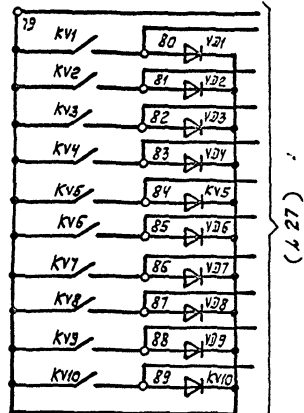 79
KV1 80 VD1
KV2 81 VD2
KV3 82 VD3
KV4 83 VD4
KV5 84 KV5
KV6 85 VD6
KV7 86 VD7
KV8 87 VD8
KV9 88 VD9
KV10 89 KV10
(L27)